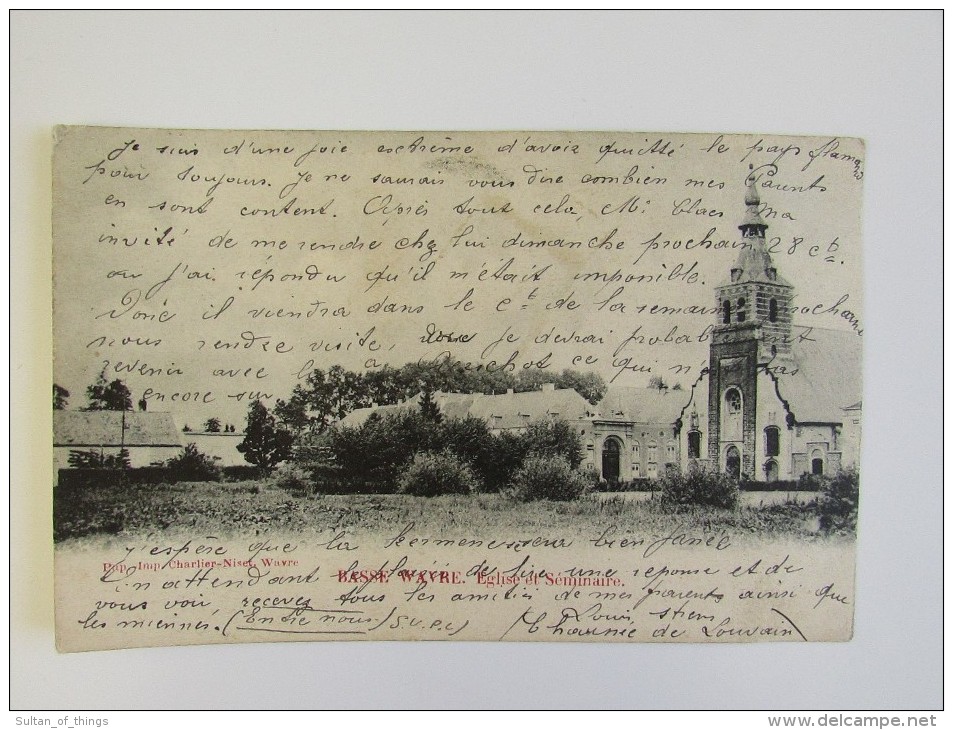 Je suis d'une joie extrême d'avoir quitté le pays flamand
pour toujours. Je ne saurais vous dire combien mes Parents
en sont content. Après tout cela, Mr Claes m'a
invité de me rendre chez lui dimanche prochain 28 ct.
ou j'ai répondu qu'il m'était imposible.
Donc il viendra dans le ct de la semaine prochaine
nous rendre visite, donc je devrai probablement
revenir avec lui a Aerschot ce qui n'est pas
encore sur
j'espère que la kermesse sera bien fanée
Pap. Imp. Charlier-Niset, Wavre
BASSE WAVRE. Eglise et Séminaire.
En attendant le plaisir de lire une reponse et de
vous voir, recevez tous les amitiés de mes parents ainsi que
les miennes. (Entre nous) S.V.P.
Louis
de Louvain
Sultan_of_things
www.delcampe.net